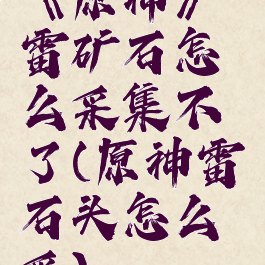 《原神》
雷矿石怎
么采集不
了(原神雷
石头怎么
采)